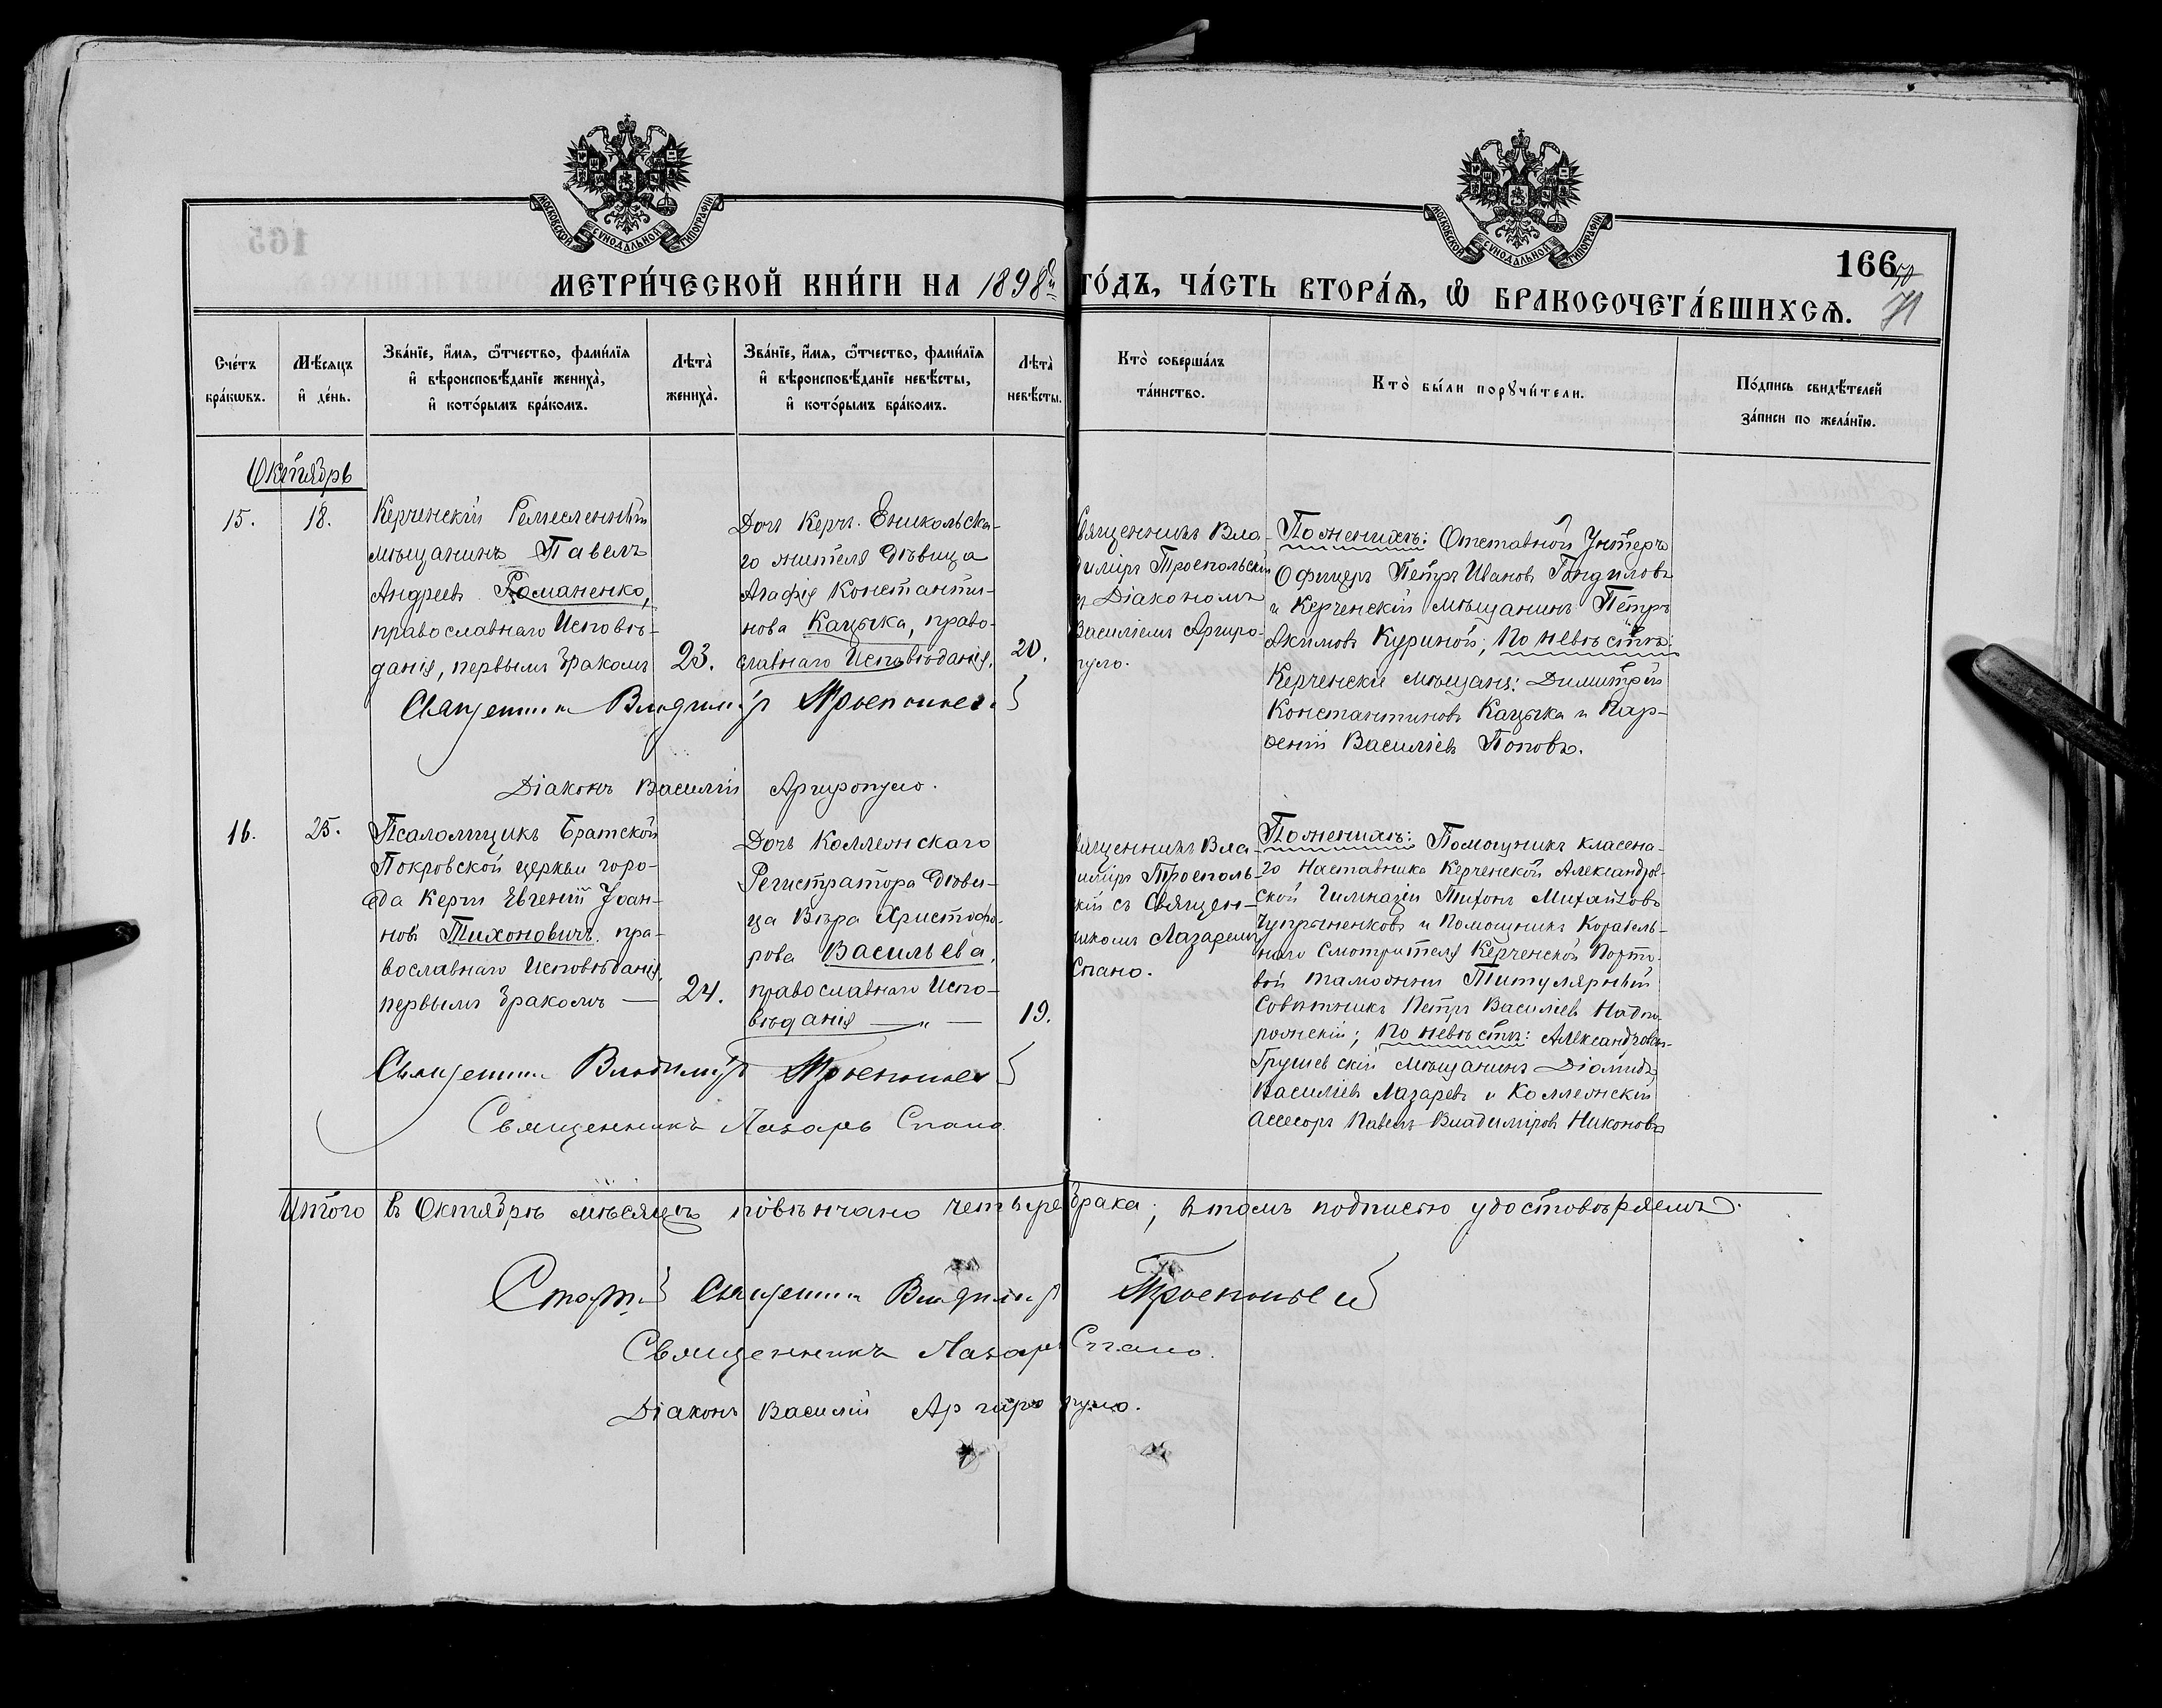 МОСКОВСКОЙ СѴНОДАЛЬНОЙ ТИПОГРАФІИ
МОСКОВСКОЙ СѴНОДАЛЬНОЙ ТИПОГРАФІИ
166
71
МЕТРИ́ЧЕСКОЙ КНИ́ГИ НА 1898й ГО́ДЪ, ЧА́СТЬ ВТОРА́Ѧ, Ѡ҆ БРАКОСОЧЕТА́ВШИХСѦ.
Сче́тъ бра́кѡвъ.
Мѣ́сяцъ и҆ де́нь.
Зва́нїе, и҆́мя, ѻ҆́тчество, фами́лїя
и҆ вѣроисповѣ́данїе жениха̀,
и҆ кото́рымъ бра́комъ.
Лѣта̀ жениха̀.
Зва́нїе, и҆́мя, ѻ҆́тчество, фами́лїя
и҆ вѣроисповѣ́данїе невѣ́сты,
и҆ кото́рымъ бра́комъ.
Лѣта̀ невѣ́сты.
Кто̀ соверша́лъ
та́инство.
Кто̀ бы́ли порꙋчи́тели.
По́дпись свидѣ́телей
за́писи по жела́нїю.
Октябрь
15.
18.
Керченскій Ремесленный
мѣщанинъ Павелъ
Андреевъ Романенко,
православнаго Исповѣ-
данія, первымъ бракомъ
23.
Дочь Керчь-Еникольска-
го жителя дѣвица
Агафія Константи-
нова Кацыка, право-
славнаго Исповѣданія.
20.
Священникъ Вла-
диміръ Троепольскій
съ Діакономъ
Василіемъ Аргиро-
пуло.
По женихѣ: Отставной Унтеръ
Офицеръ Петръ Ивановъ Гондиловъ
и Керченскій мѣщанинъ Петръ
Акимовъ Куриной; По невѣстѣ:
Керченскіе мѣщане: Димитрій
Константиновъ Кацыка и Пар-
ѳеній Василіевъ Поповъ.
Священникъ Владиміръ Троепольскій
Діаконъ Василій Аргиропуло.
16.
25.
Псаломщикъ Братской
Покровской церкви горо-
да Керчи Евгеній Іоан-
новъ Тихоновичъ, пра-
вославнаго Исповѣданія,
первымъ бракомъ —
24.
Дочь Коллежскаго
Регистратора дѣви-
ца Вѣра Христофо-
рова Васильева,
православнаго Испо-
вѣданія — „ —
19.
Священникъ Вла-
диміръ Троеполь-
скій съ Священ-
никомъ Лазаремъ
Спано.
По женихѣ: Помощникъ класена-
го Наставника Керченской Александров-
ской Гимназіи Тихонъ Михайловъ
Чупрыненковъ и Помощникъ Корабель-
наго Смотрителя Керченской Порто-
вой таможни Титулярный
Совѣтникъ Петръ Василіевъ Надпо-
рожскій; По невѣстѣ: Александровскъ-
Грушевскій мѣщанинъ Діомидъ
Василіевъ Лазаревъ и Коллежскій
Ассесоръ Павелъ Владиміровъ Никоновъ
Священникъ Владиміръ Троепольскій
Священникъ Лазарь Спано.
Итого въ Октябрѣ мѣсяцѣ повѣнчано четыре брака; въ томъ подписью удостовѣряемъ.
Священникъ Владиміръ Троепольскій
Священникъ Лазарь Спано.
Діаконъ Василій Аргиропуло.